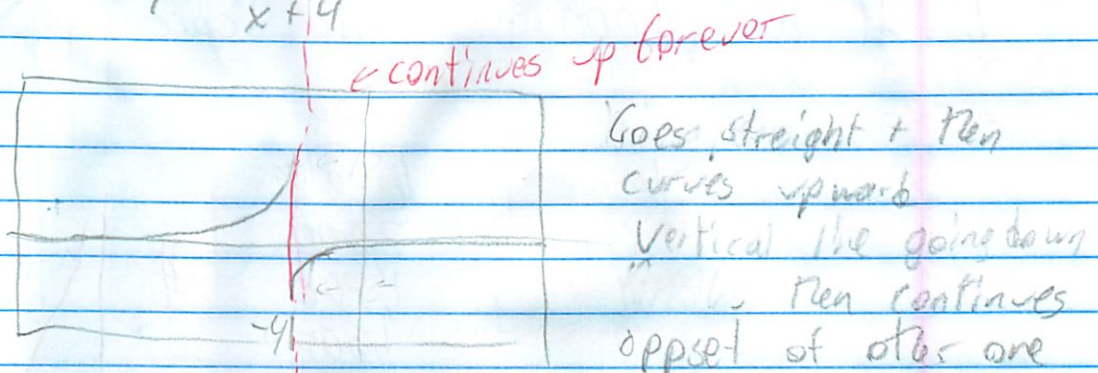 x + 4
continues up forever
Goes streight + then
curves upward
Vertical line going down
then continues
-4
oppset of other one